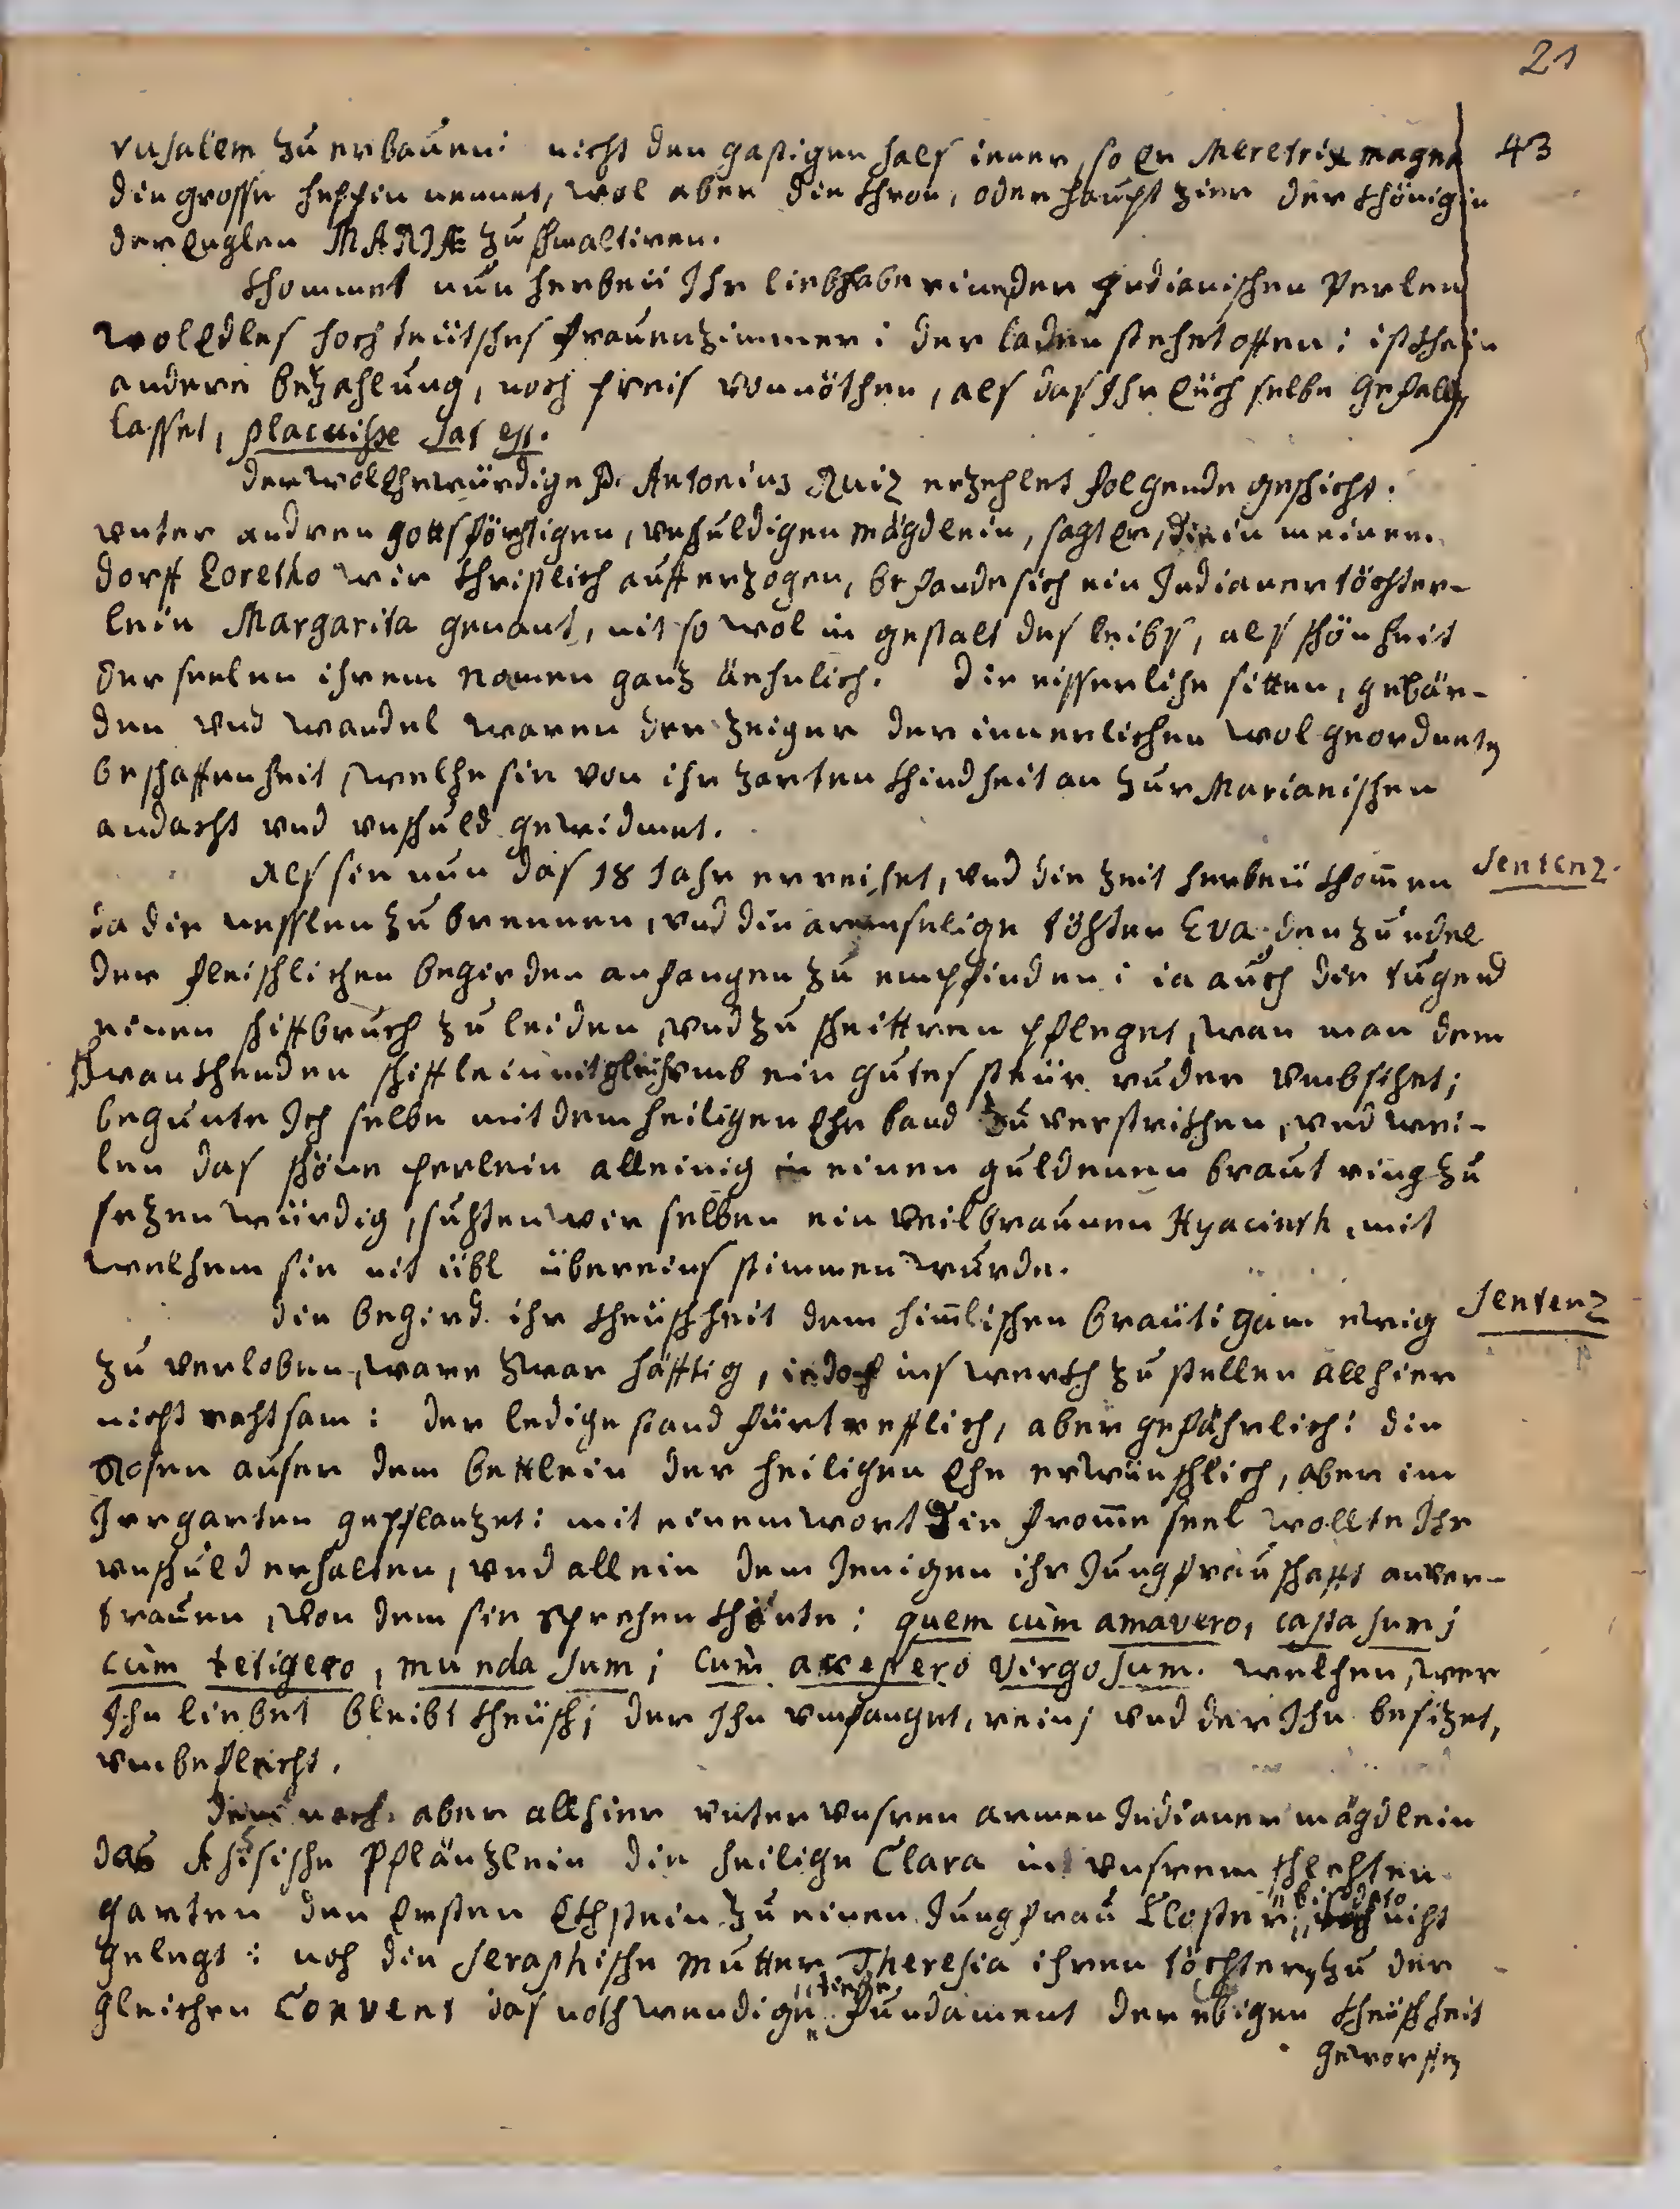 21
rusalem zu erbauen: nicht den gastigen hals iener, so Er Meretrix magna 43
die grosse heppin nennet, wol aber die Chron, oder haupt zier der Chönigin
der Englen MARIÆ zu schmaltiren.
Chommet nun herbeÿ Ihr liebhaberine der Indianischen Perlen
wolEdles hochteütsches frauenzimmer: der laden stehet offen: ist chein
andere bezahlung, noch preis vonnöthen, als das Ihr Eüch selbe gefallen
lasset, placuisse sat est.
Der wolEhrwürdige P. Antonius Ruiz erzehlet folgende geschicht.
vnter andren gottsförchtigen, vnschuldigen mägdlein, sagt Er, die in meinem
dorff Loretho wir Christlich aufferzogen, befande sich ein Indianer töchter-
lein Margarita genant, nit so wol in gestalt des leibs, als schönheit
der seelen ihrem namen ganz änhnlich. Die eisserliche sitten, gebär-
den vnd wandel waren der zeiger der innerlichen wol geordneten
beschaffenheit, welche sie von ihr zarten Chindheit an zur Marianischen
andacht vnd vnschuld gewidmet.
Als sie nun das 18 Jahr erreichet, vnd die zeit herbeÿ chom̄en Sentenz.
da die nesslen zu brennen, vnd die armselige töchter Eva den zundel
der fleischlichen begirden anfangen zu empfinden: ia auch die tugend
einen schiffbruch zu leiden, vnd zu scheittren pfleget, wan man dem
schwanchenden schifflein nit gleich vmb ein gutes steür ruder vmbsihet;
begunte Ich selbe mit dem heiligen Ehe band zu verstrichen, vnd wei-
len das schöne perlein alleinig in einen guldenen braut ring zu
sezen würdig, suchten wir selben ein Veilbraunen Hyacinth, mit
welchem sie nit übl übereins stimmen wurde.
Die begird ihr Cheüschheit dem him̄lischen braütigam ewig Sentenz
zu verloben, ware zwar häfftig, iedoch ins werch zu stellen allhier
nicht rahtsam: der ledige stand fürtrefflich, aber gefährlich: die
Rosen auser dem bettlein der heiligen Ehe erwünschlich, aber im
Irrgarten gepflanzet: mit einem wort die from̄e seel wollte Ihr
vnschuld erhalten, vnd allein dem Jenigen ihr Jungfrauschafft anver-
trauen, von dem sie sprechen chönte: quem cùm amavero, casta sum;
cùm tetigero, munda sum; cum accepero virgo sum. welchen, wer
Ihn liebet bleibt Cheüsch; der Ihn vmfanget, rein; vnd der Ihn besizet,
vnbeflecht.
Demnach aber allhier vnter vnsren armen Indianer mägdlein
das Assisische Pflänzlein die heilige Clara in vnsrem schlechten
garten den Ersten Echstein zu einen Jungfrau Closter bis dato nicht
gelegt: noch die Seraphische Mutter Theresia ihren töchtern zu der
gleichen Convent das nothwendige tieffe fundament der ebigen Cheüschheit
geworffen